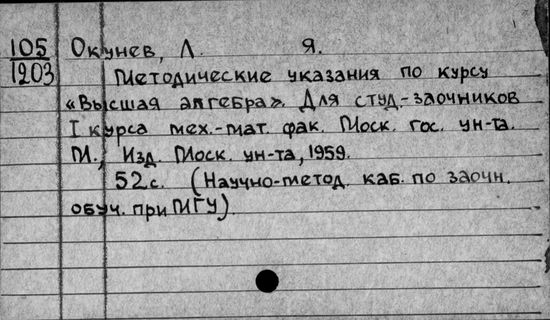 105 Окунев, Л. Я.
1203 Методические указания по курсу
«Высшая алгебра». Для студ.-заочников
I курса мех.-мат. фак. Моск. гос. ун-та.
М., Изд. Моск. ун-та, 1959.
52 с. (Научно-метод. каб. по заочн.
обуч. при МГУ).